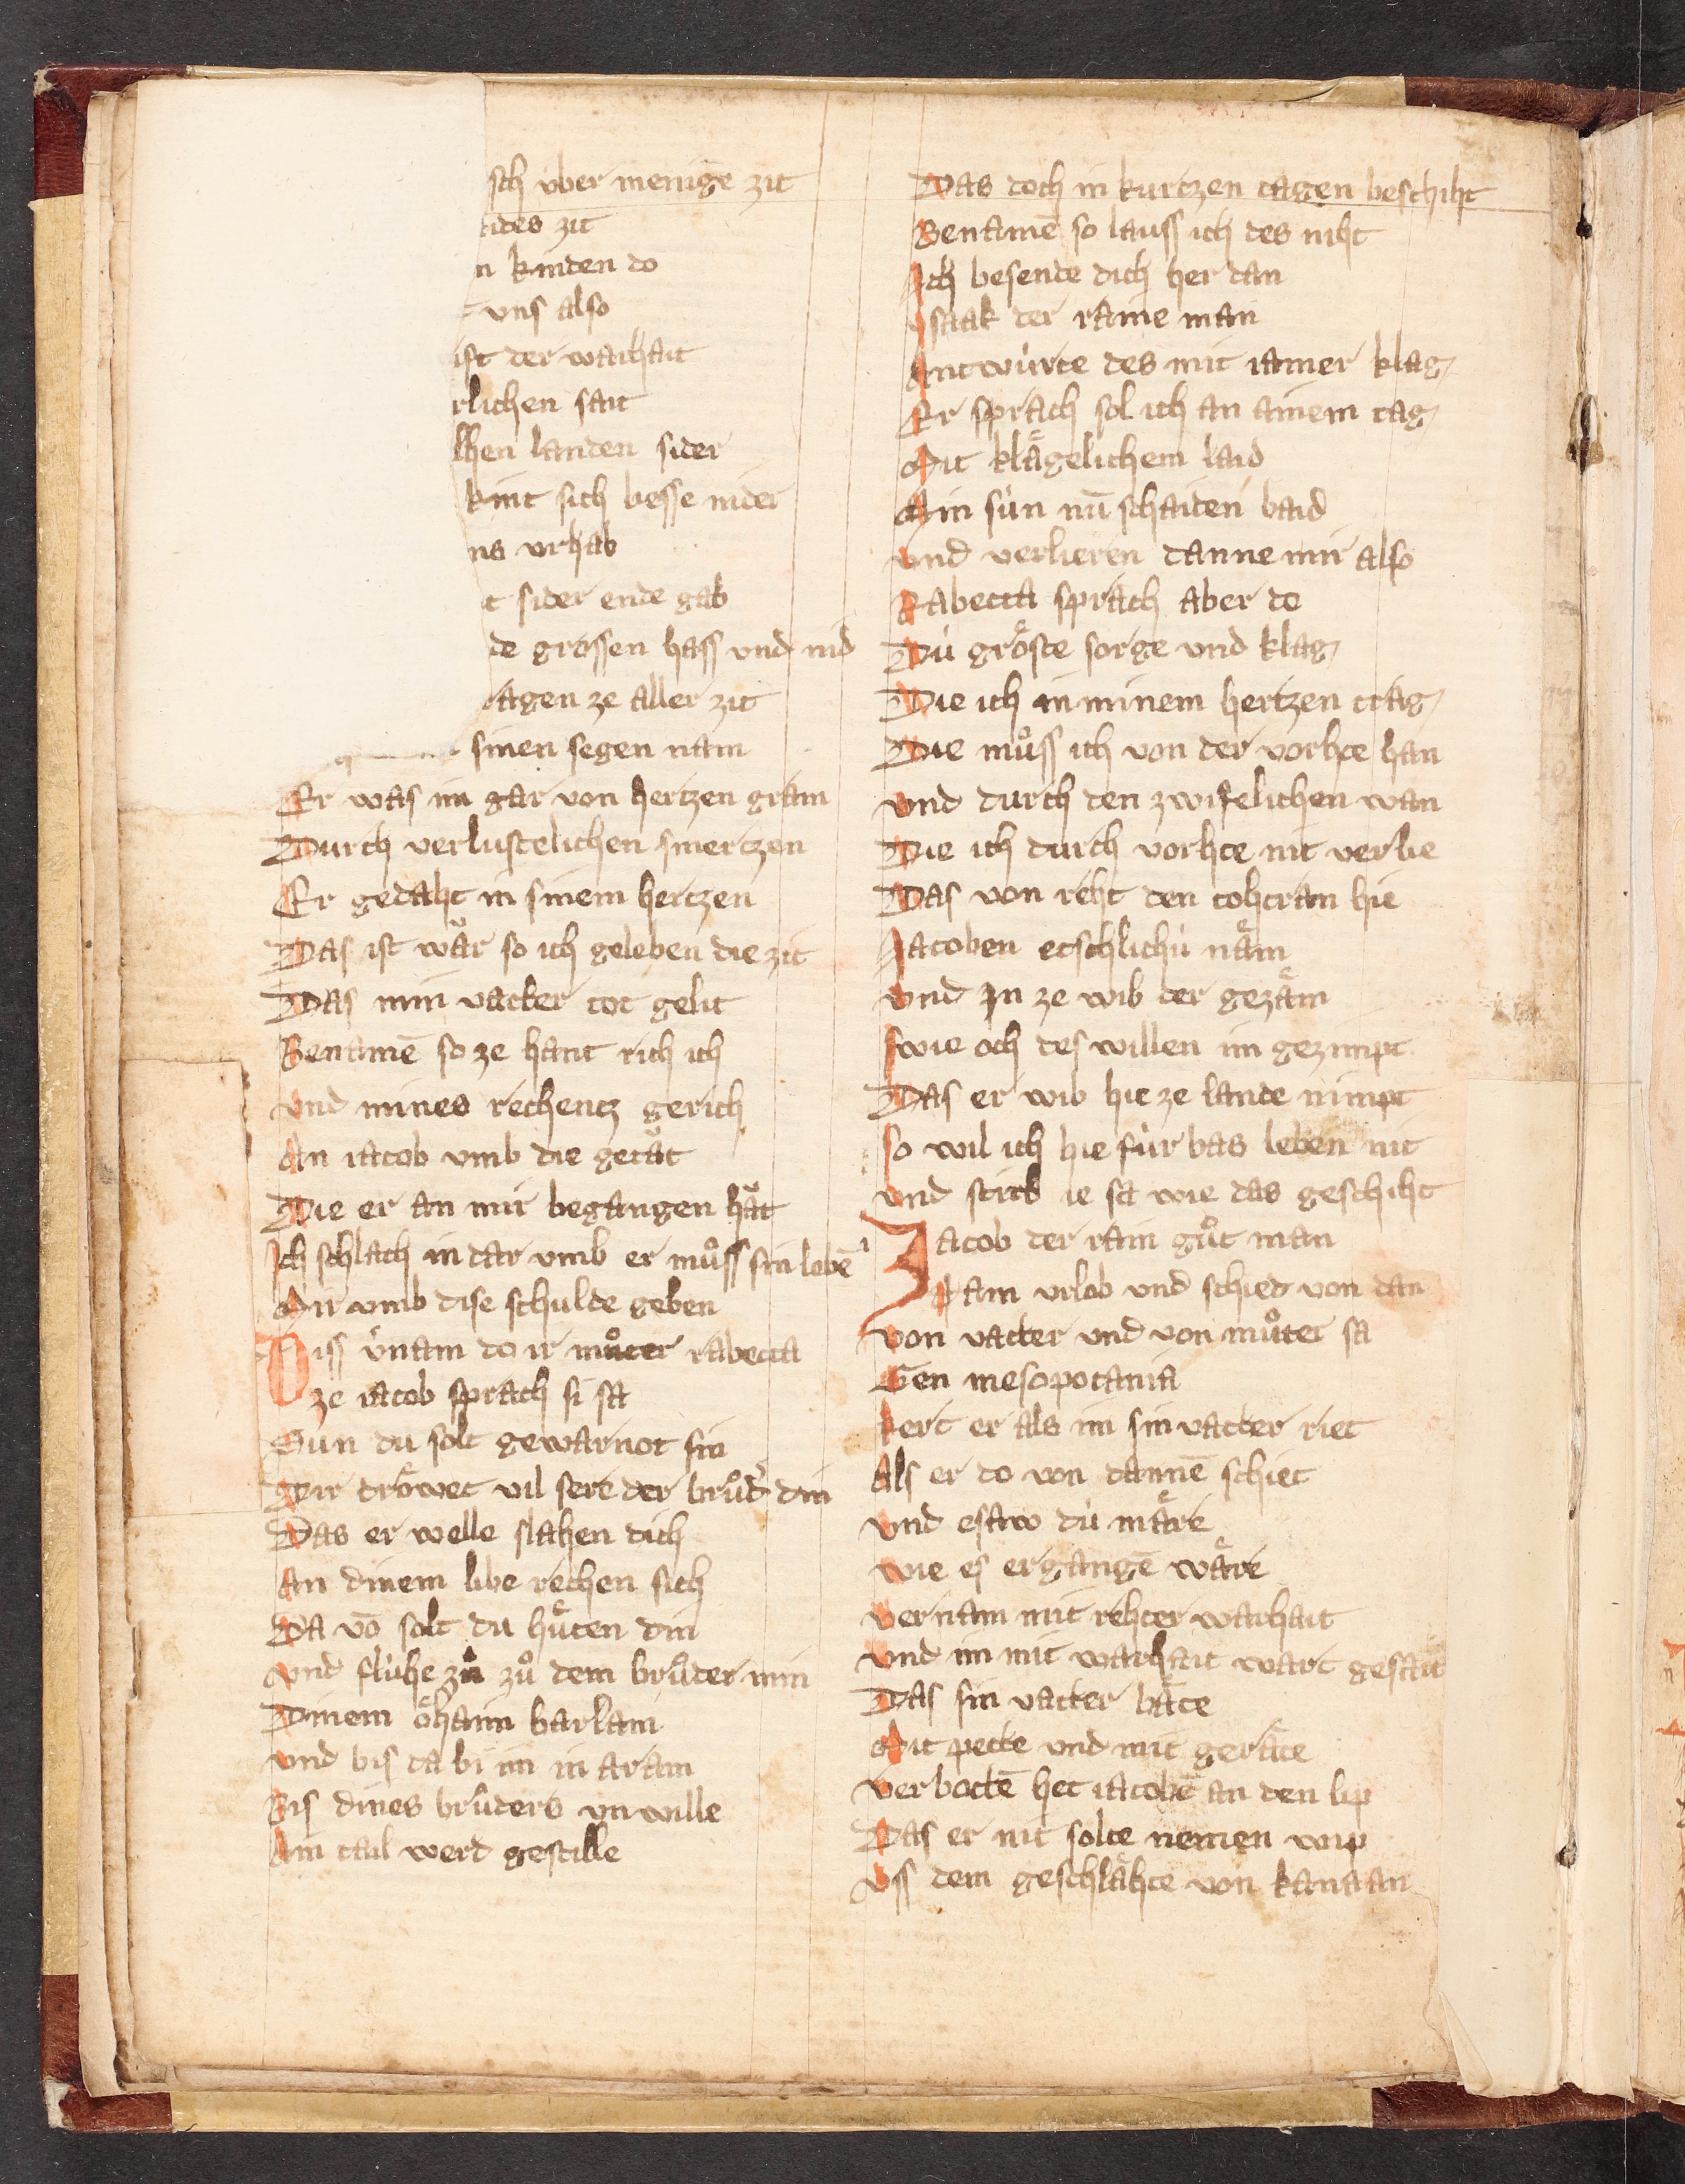 sch vber menige zit
ides zit
n kinden do
vns also
ist der warhait
rlichen sait
lhen landen sider
kint sich besse nider
ns vrhab
t sider ende gab
de grossen hass vnd nid
ragen ze aller zit
sinen segen nam
Er was im gar von hertzen gram
Durch verlustelichen smertzen
Er gedaht in sinem hertzen
Das ist waͤr so ich geleben die zit
Das min vatter tot gelit
Benamē so ze hant rich ich
vnd mines rechentz gerich
An iacob vmb die getaͤt
Die er an mir begangen haͤt
Ich schlach in dar vmb er muͦss sin lebē
Mir vmb dise schulde geben
Diss v̓nam do ir muͦter rabecca
ze iacob sprach si sa
Sun du solt gewarnot sin
Dir troͤwet vil sere der bruͦd̓ din
Das er welle slahen dich
An dinem libe rechen sich
Da vō solt du huͤten din
vnd fluhe zu zuͦ dem bruͦder min
Dinem oͤhaim barlam
vnd bis da bi im in aram
Bis dines bruͦders vnwille
Ain tail werd gestille
Das doch in kurtzen tagen beschiht
Benamē so lauss ich des niht
Ich besende dich her dan
ysaak der raine man
Antwúrte des mit iamer klag
Er sprach sol ich an ainem tag
Mit klaͤgelichem laid
Min sún nū schaiden baid
vnd verlieren danne mir also
Rabecca sprach aber do
Dú groͤste sorge vnd klag
Die ich in minem hertzen trag
Die muͦss ich von der vorhte han
vnd durch den zwifelichen wan
Die ich durch vorhte nit verlie
Das von reht den tohtran hie
Jacoben etschlichú naͤm
vnd Jn ze wib der gezaͤm
swie och des willen im gezimpt
Das er wib hie ze lande nimpt
so wil ich hie fúr bas leben nit
vnd stirb ie sa wie das geschiht
Jacob der rain guͦt man
Nam vrlob vnd schied von dan
von vatter vnd von muͦter sa
Gen mesopotania
kert er als im sin vatter riet
Als er do von dannē schiet
vnd esaw dú maͤre
wie es ergangē waͤre
vernam mit rehter warhait
vnd im mit warhait wart gesait
Das sin vatter haͤte
Mit pette vnd mit geraͤte
verbottē het iacobē an den lip
Das er nit solte nemen wip
vss dem geschlaͤhte von kanaan